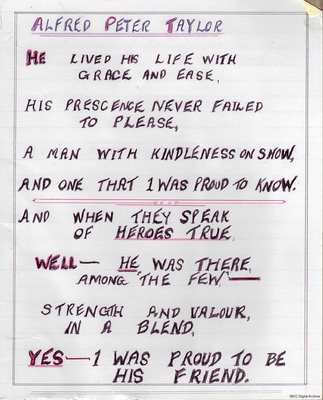 ALFRED PETER TAYLOR
HE LIVED HIS LIFE WITH
GRACE AND EASE,
HIS PRESCENCE NEVER FAILED
TO PLEASE,
A MAN WITH KINDLENESS ON SHOW,
AND ONE THAT I WAS PROUD TO KNOW.
AND WHEN THEY SPEAK
OF HEROES TRUE,
WELL — HE WAS THERE,
AMONG 'THE FEW' —
STRENGTH AND VALOUR,
IN A BLEND,
YES — I WAS PROUD TO BE
HIS FRIEND.
©IBCC Digital Archive